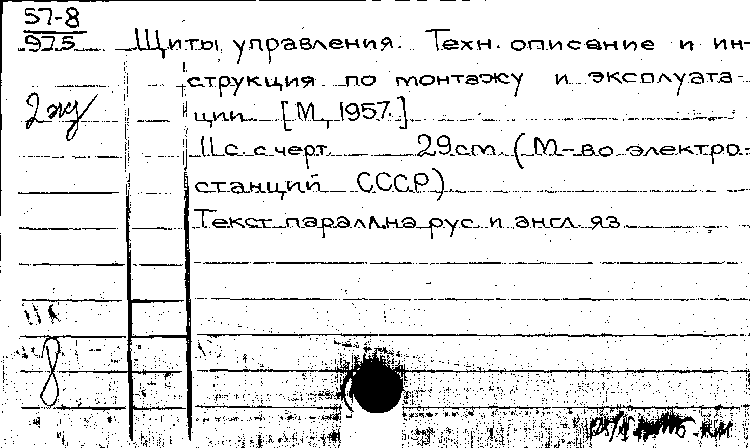 57-8
975
Щиты управления. Техн. описание и ин-
струкция по монтажу и эксплуата-
ции. [М., 1957.]
2 экз
11 с. с черт. 29 см. (М-во электро-
станций СССР)
Текст паралл. на рус и англ яз.
8